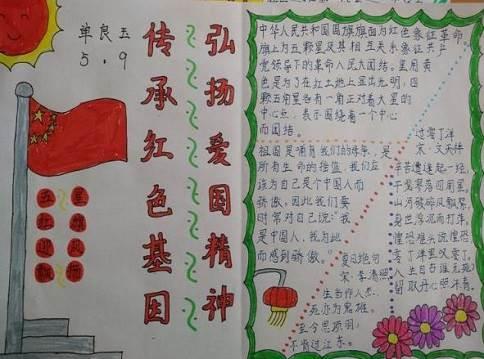 单良五
5.9
弘扬爱国精神
传承红色基因
五星
红旗
迎风
飘扬
中华人民共和国国旗旗面为红色象征革命
旗上为五颗星及其相互关系象征共产
党领导下的革命人民大团结。星用黄
色是为了在红土地上显出光明,四
颗五角星各有一角正对着大星的
中心点,表示围绕着一个中心
而团结。
祖国是哺育我们的
所有生命的
该为自己是个中国人而
骄傲,因此我们要
时常对自己说:“我
是中国人,我为此
而感到骄傲。
过零丁洋
宋·文天祥
辛苦遭逢起一经,
干戈寥落四周星。
山河破碎风飘絮,
身世浮沉雨打萍。
惶恐滩头说惶恐,
零丁洋里叹零丁。
人生自古谁无死?
留取丹心照汗青。
夏日绝句
宋·李清照
生当作人杰,
死亦为鬼雄。
至今思项羽,
不肯过江东。